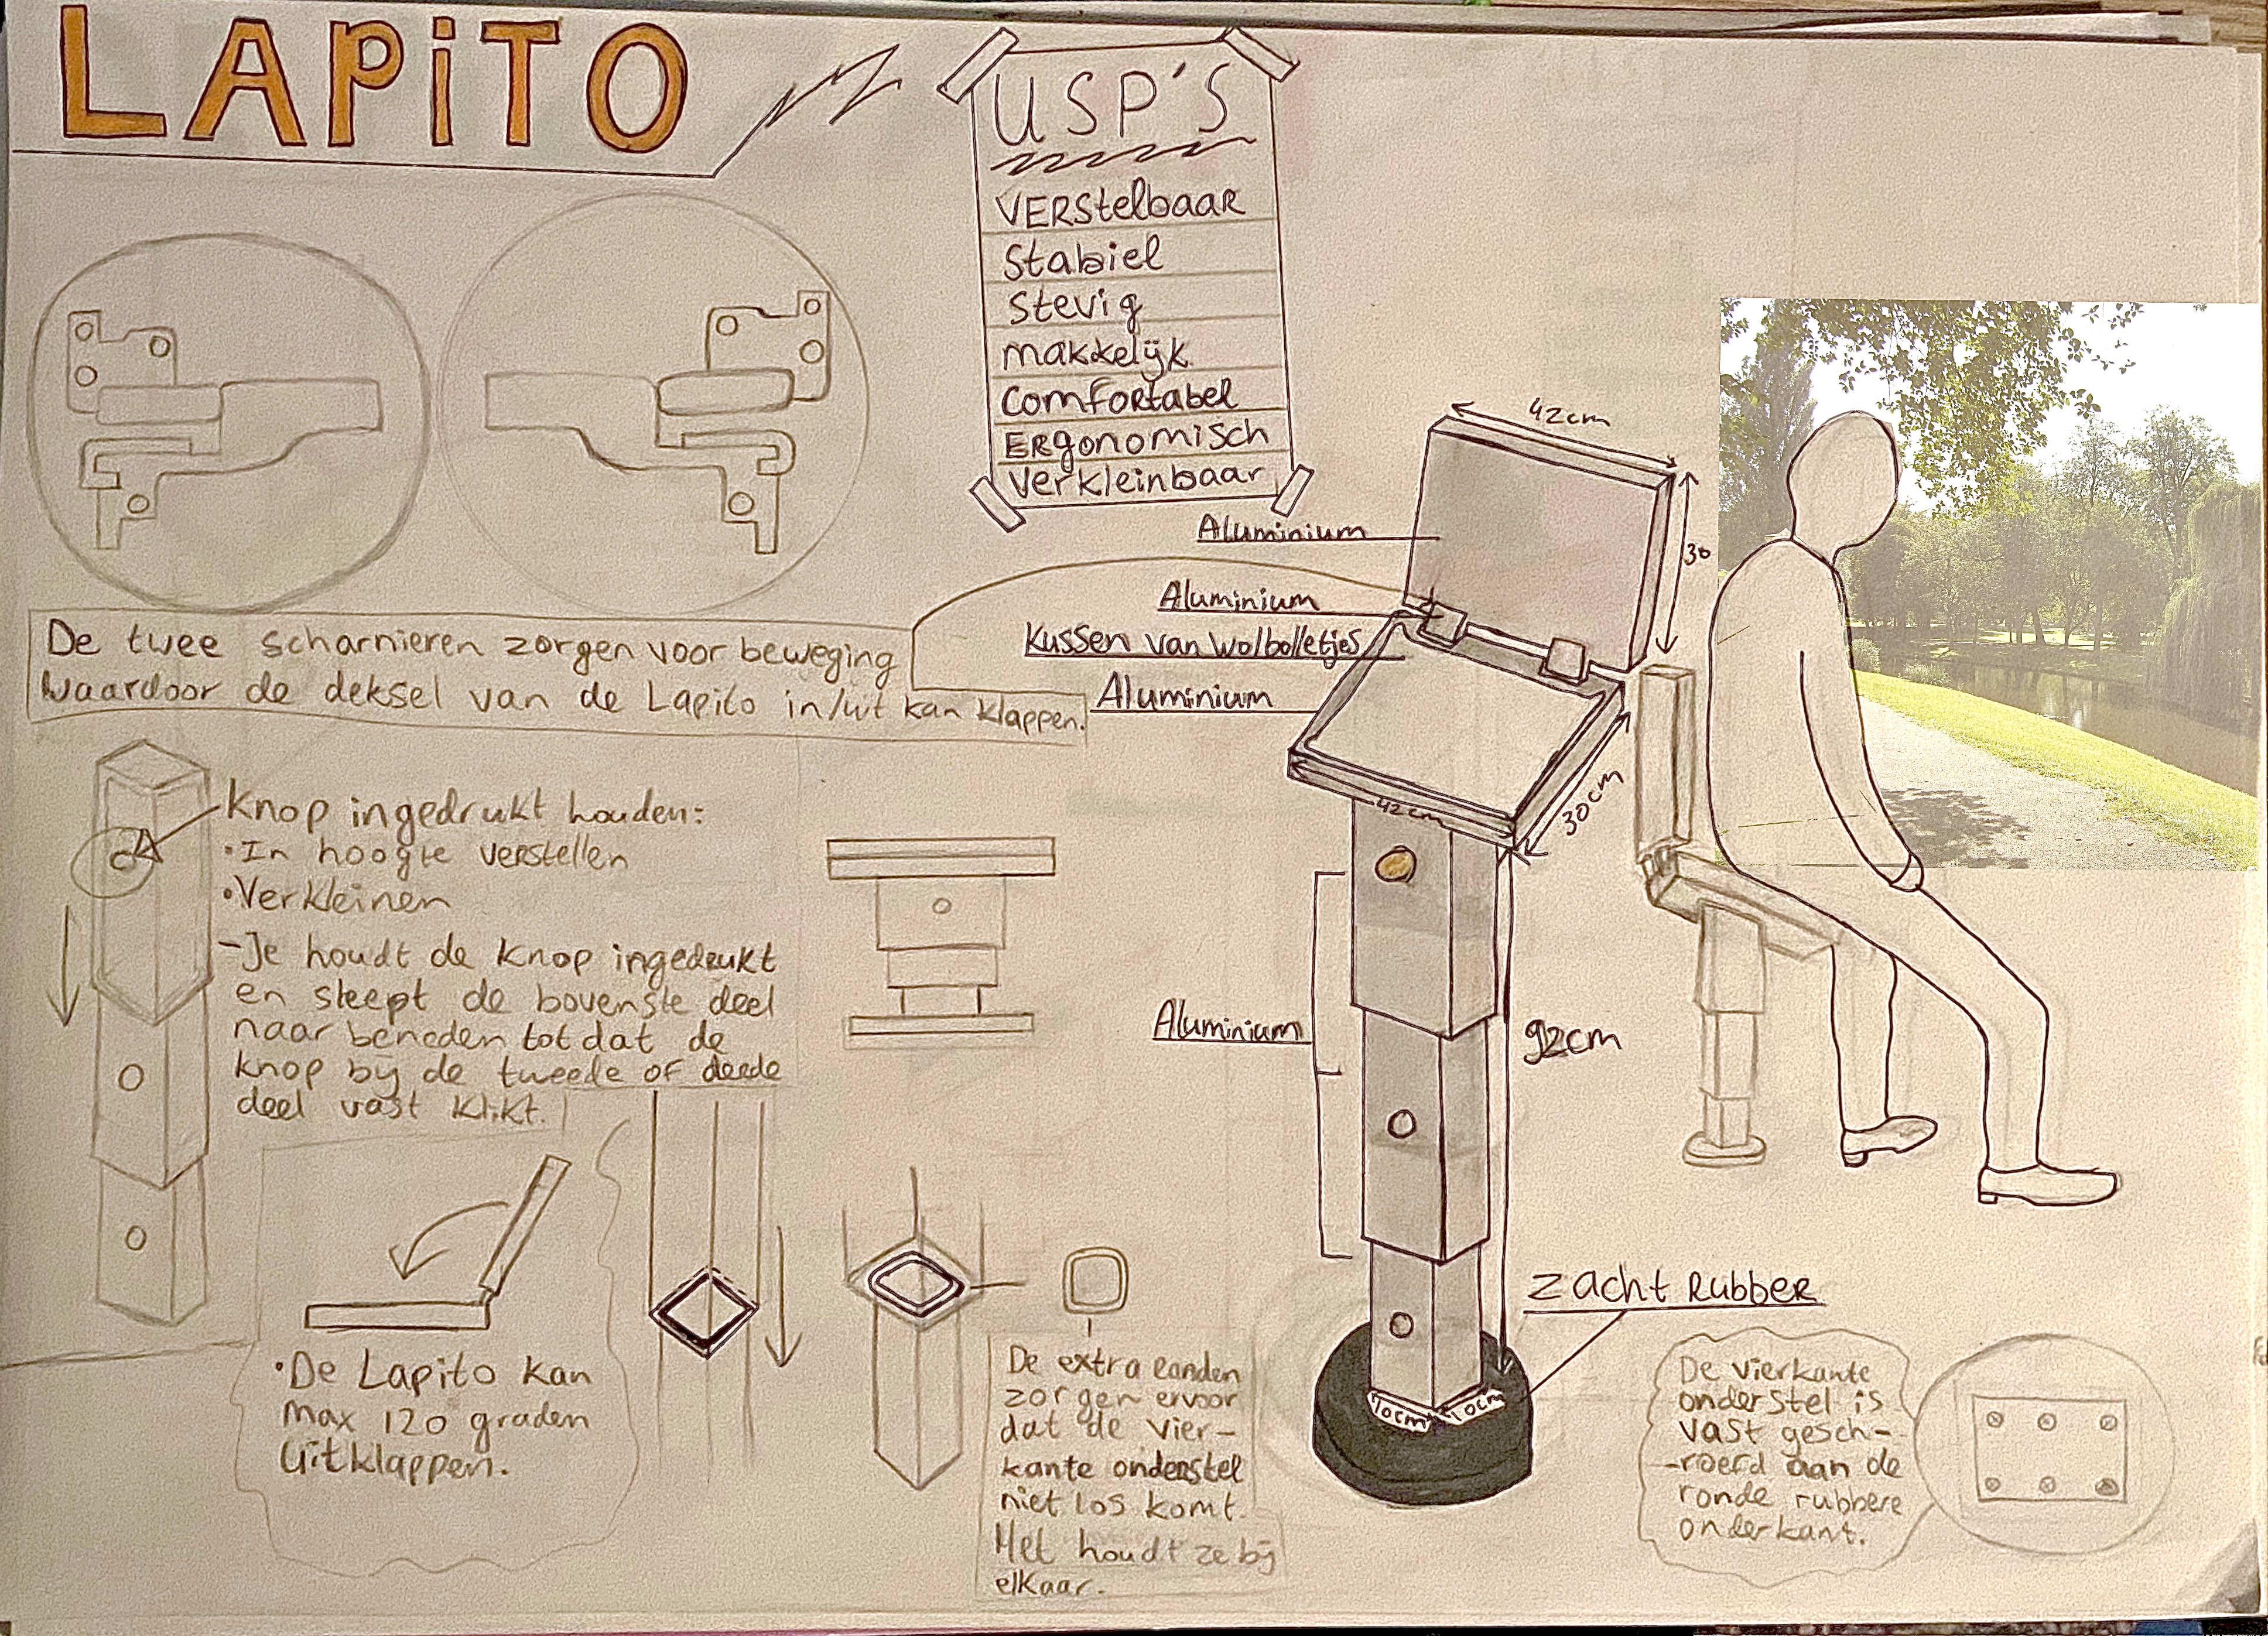 LAPiTO
USP'S
VERStelbaaR
Stabiel
Stevig
makkelijk
ComfoRtabel
ERgonomisch
Verkleinbaar
42cm
30
Aluminium
Aluminium
Kussen van Wolbolletjes
Aluminium
De twee scharnieren zorgen voor beweging
waardoor de deksel van de Lapito in/uit kan klappen.
42cm
30cm
Knop ingedrukt houden:
•In hoogte verstellen
•Verkleinen
-Je houdt de knop ingedrukt
en sleept de bovenste deel
naar beneden totdat de
knop bij de tweede of derde
deel vast klikt.
Aluminium
92cm
Zacht Rubber
10cm
10cm
•De Lapito kan
max 120 graden
uitklappen.
De extra randen
zorgen ervoor
dat de vier-
kante onderstel
niet los komt.
Het houdt ze bij
elkaar.
De vierkante
onderstel is
vast gesch-
-roefd aan de
ronde rubbere
onderkant.